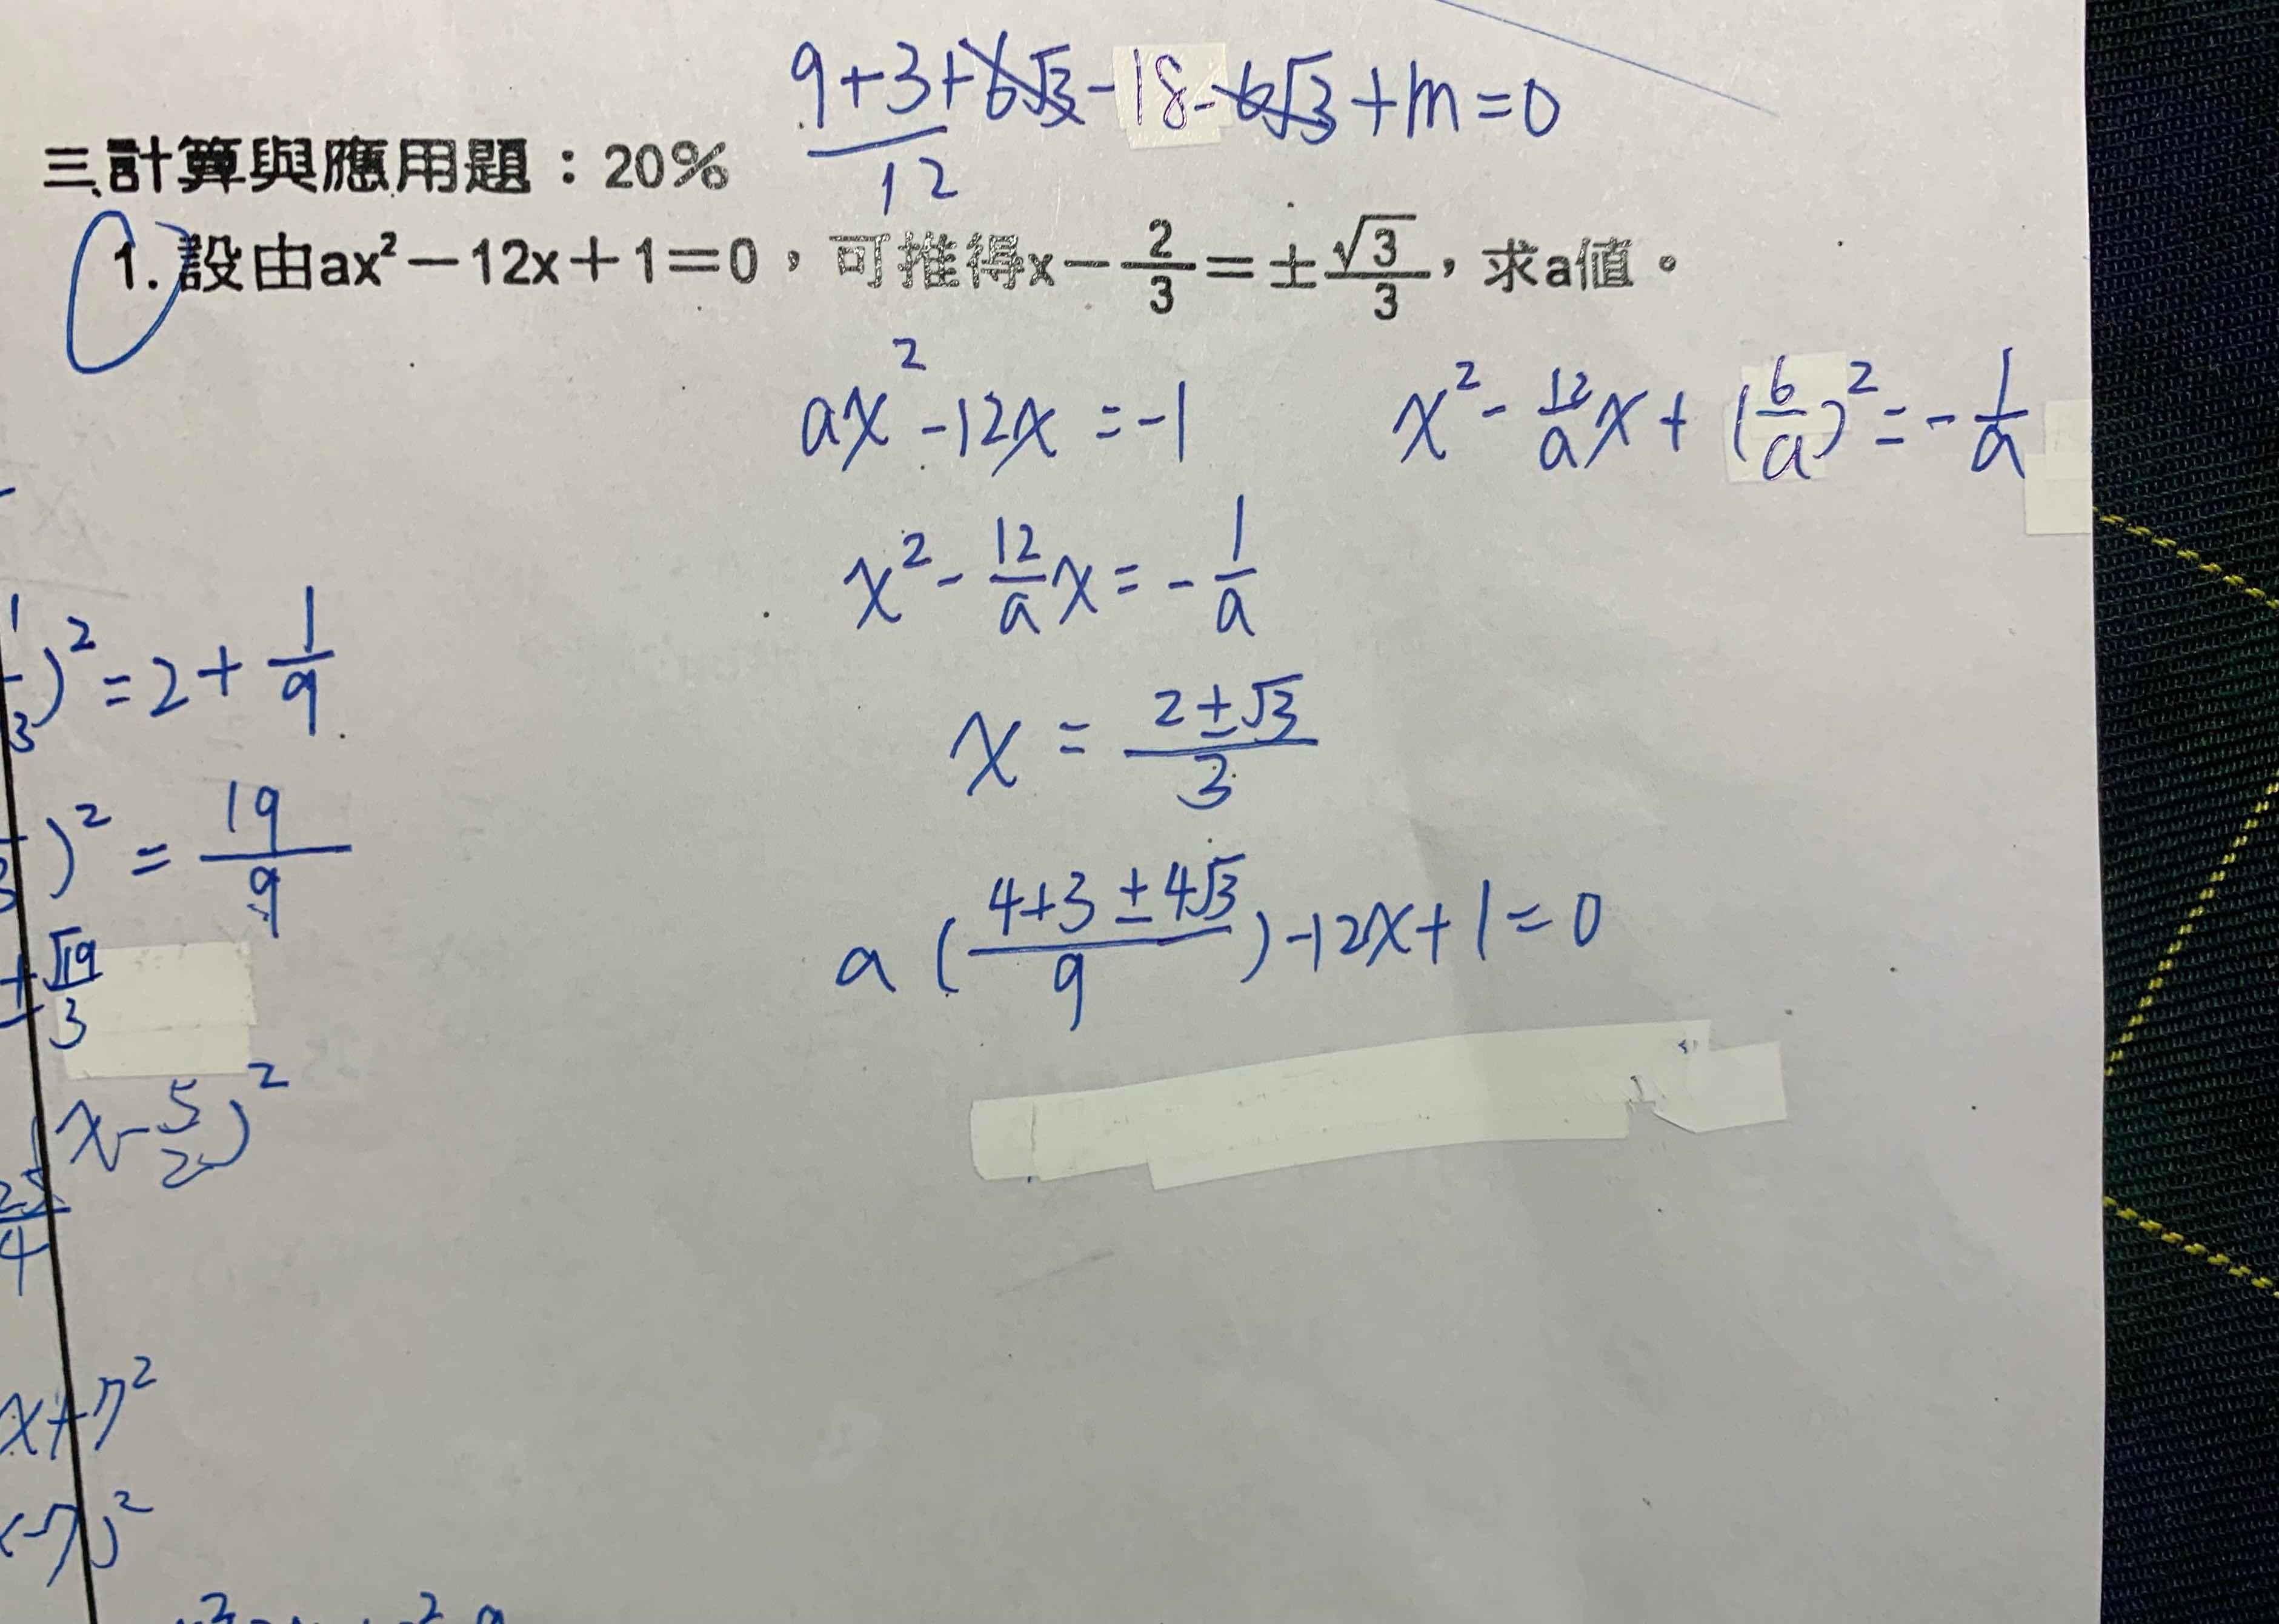 9+3+6√3-18-6√3+m=0
12
三、計算與應用題：20%
1. 設由ax²－12x＋1＝0，可推得x－2/3＝±√3/3，求a值。
ax²-12x=-1
x²-12/a x+(6/a)²=-1/a
x²-12/a x=-1/a
x=(2±√3)/3
a((4+3±4√3)/9)-12x+1=0
)²=2+1/9
)²=19/9
±√19/3
x-5/2)²
25/4
x+7)²
-7)²